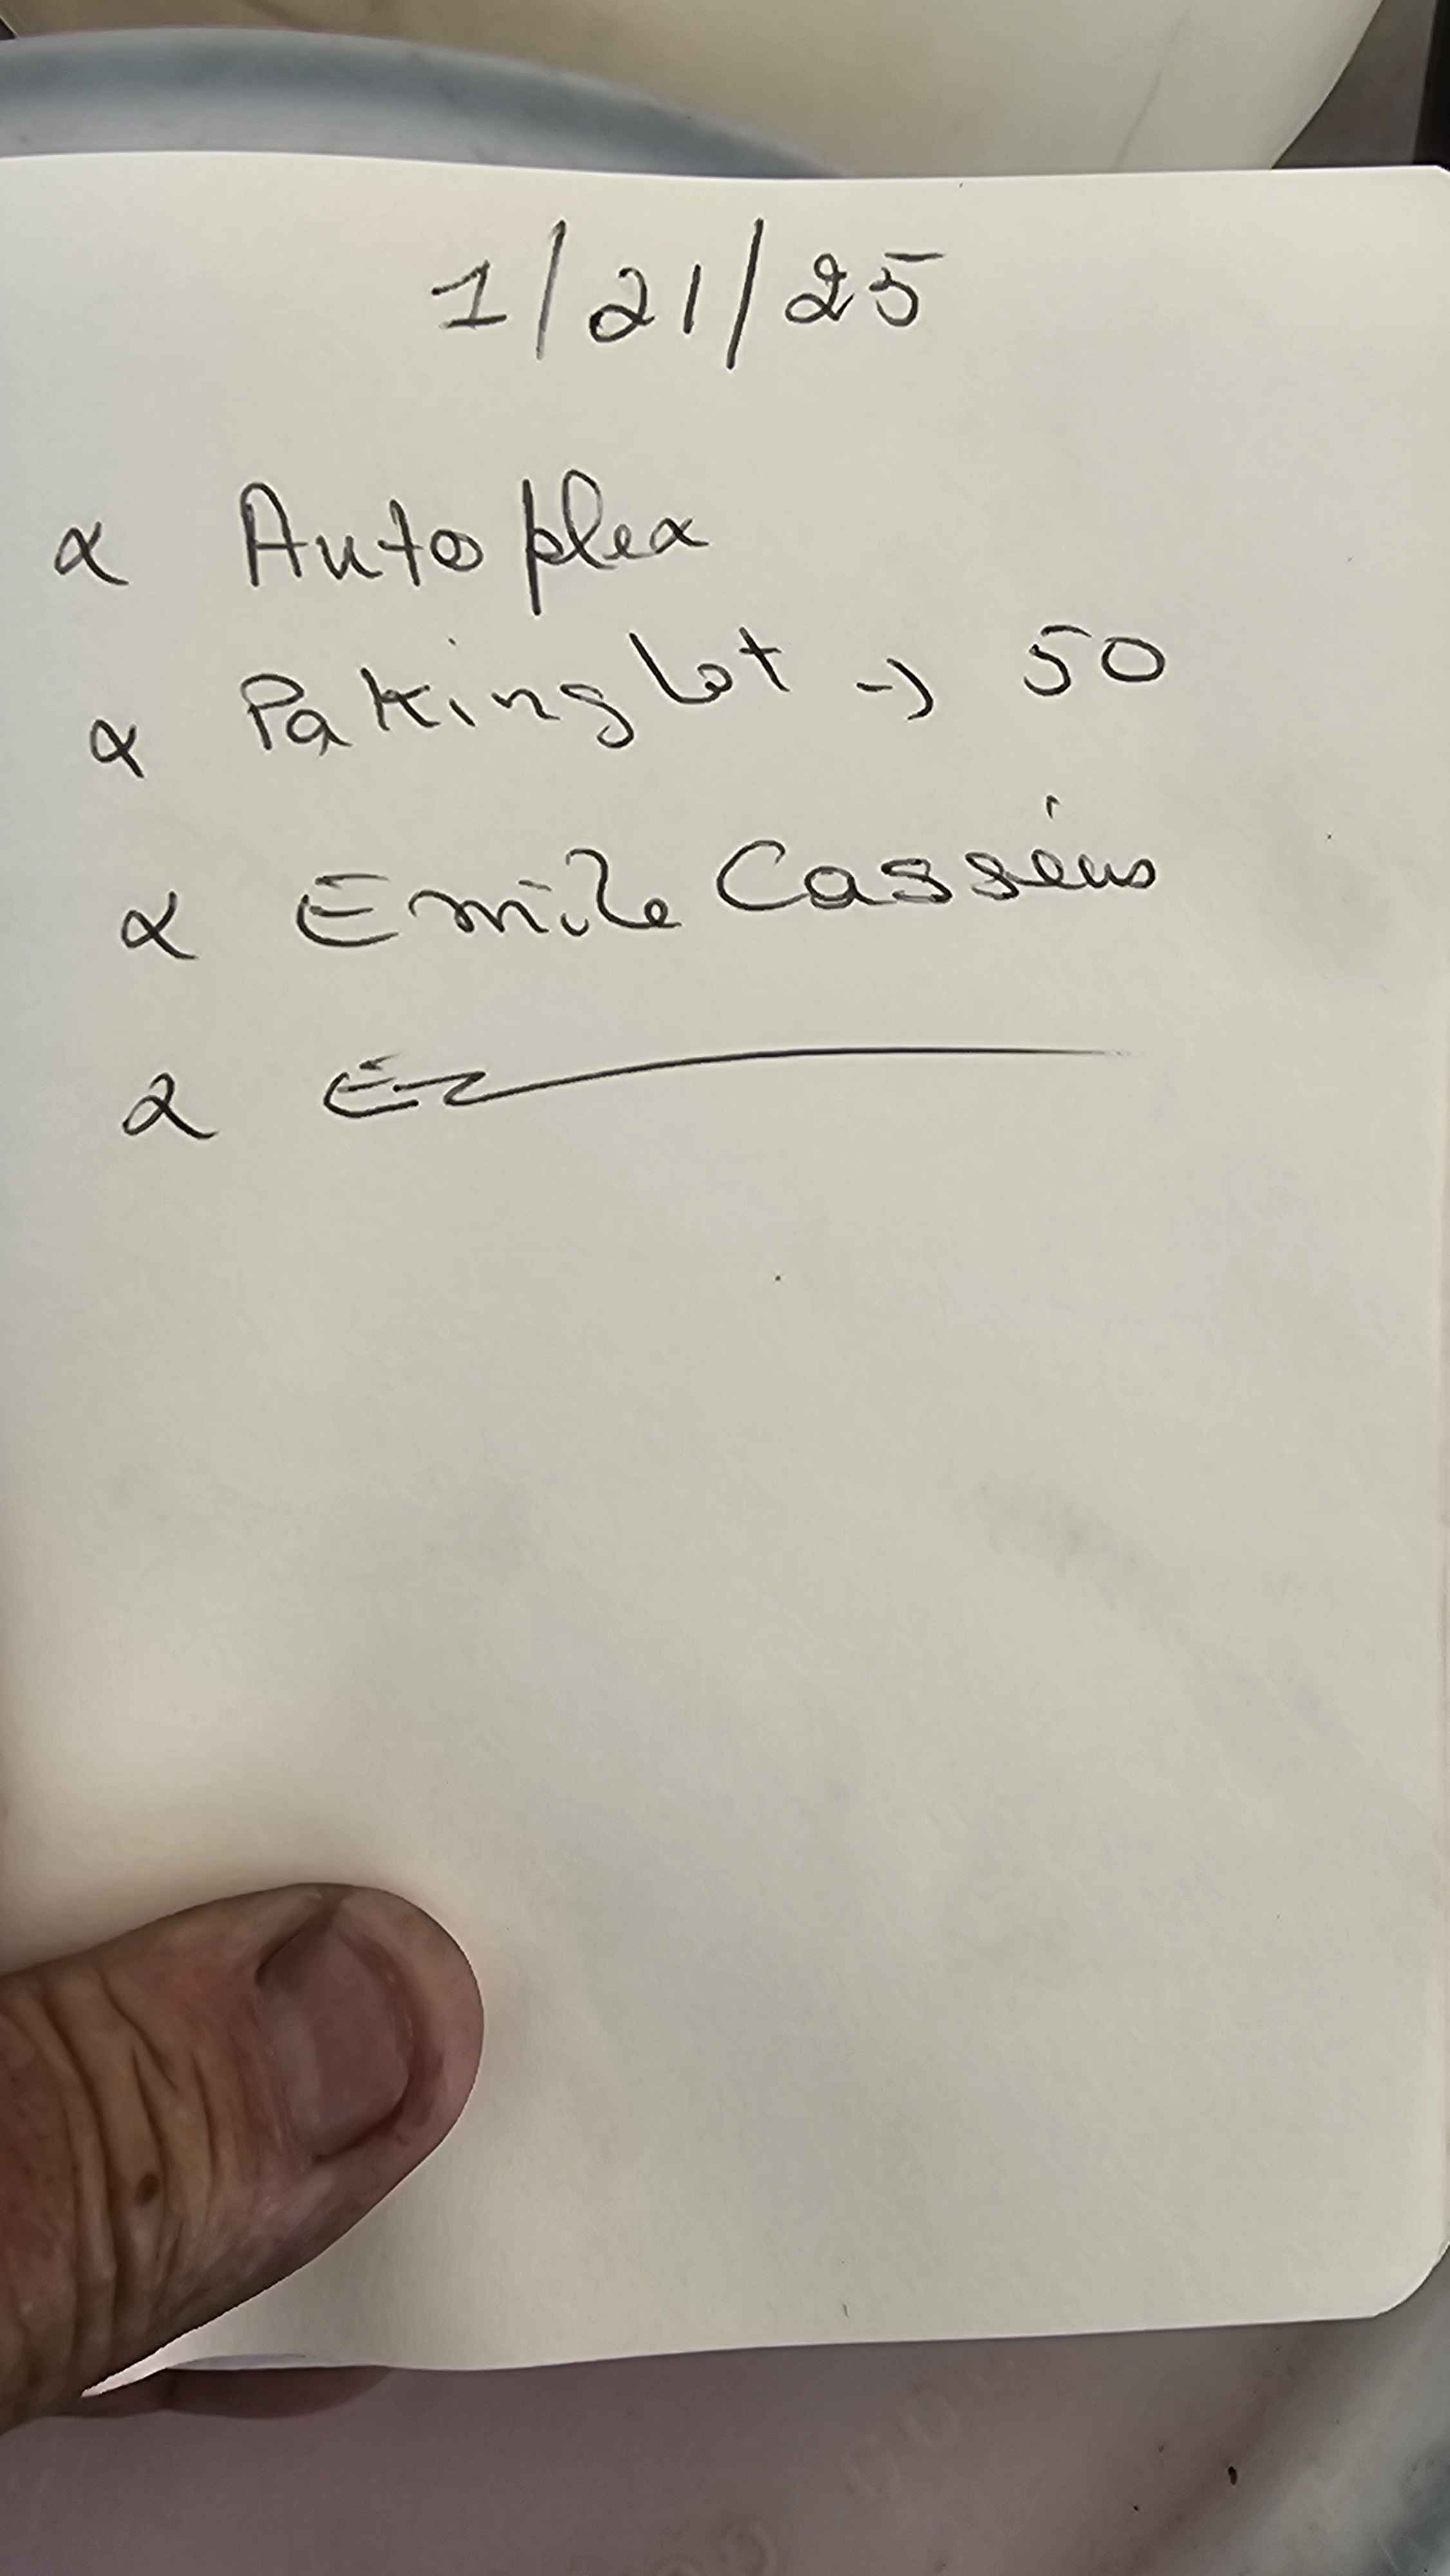 1/21/25
α Autoplex
α Parking lot → 50
α Emile Casséus
α